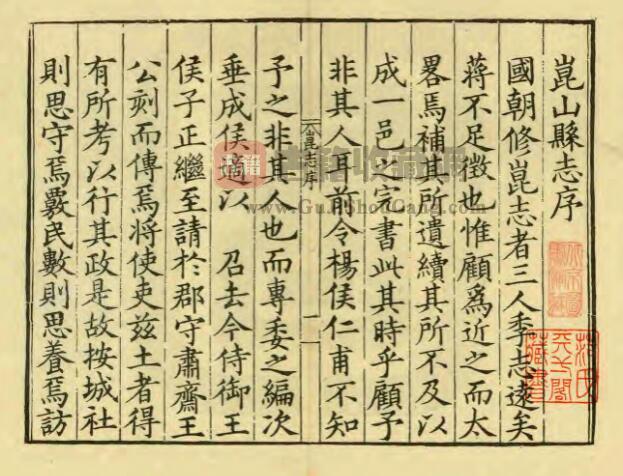 崑山縣志序
國朝修崑志者三人季志遠矣
蔣不足徴也惟顧爲近之而太
畧焉補其所遺續其所不及以
成一邑之完書此其時乎顧予
非其人耳前令楊侯仁甫不知
崑志序
一
予之非其人也而專委之編次
垂成侯適以 召去今侍御王
侯子正繼至請於郡守肅齋王
公刻而傳焉將使吏兹土者得
有所考以行其政是故按城社
則思守焉覈民數則思養焉訪
范氏天一閣藏書
www.GuJiShouCang.com